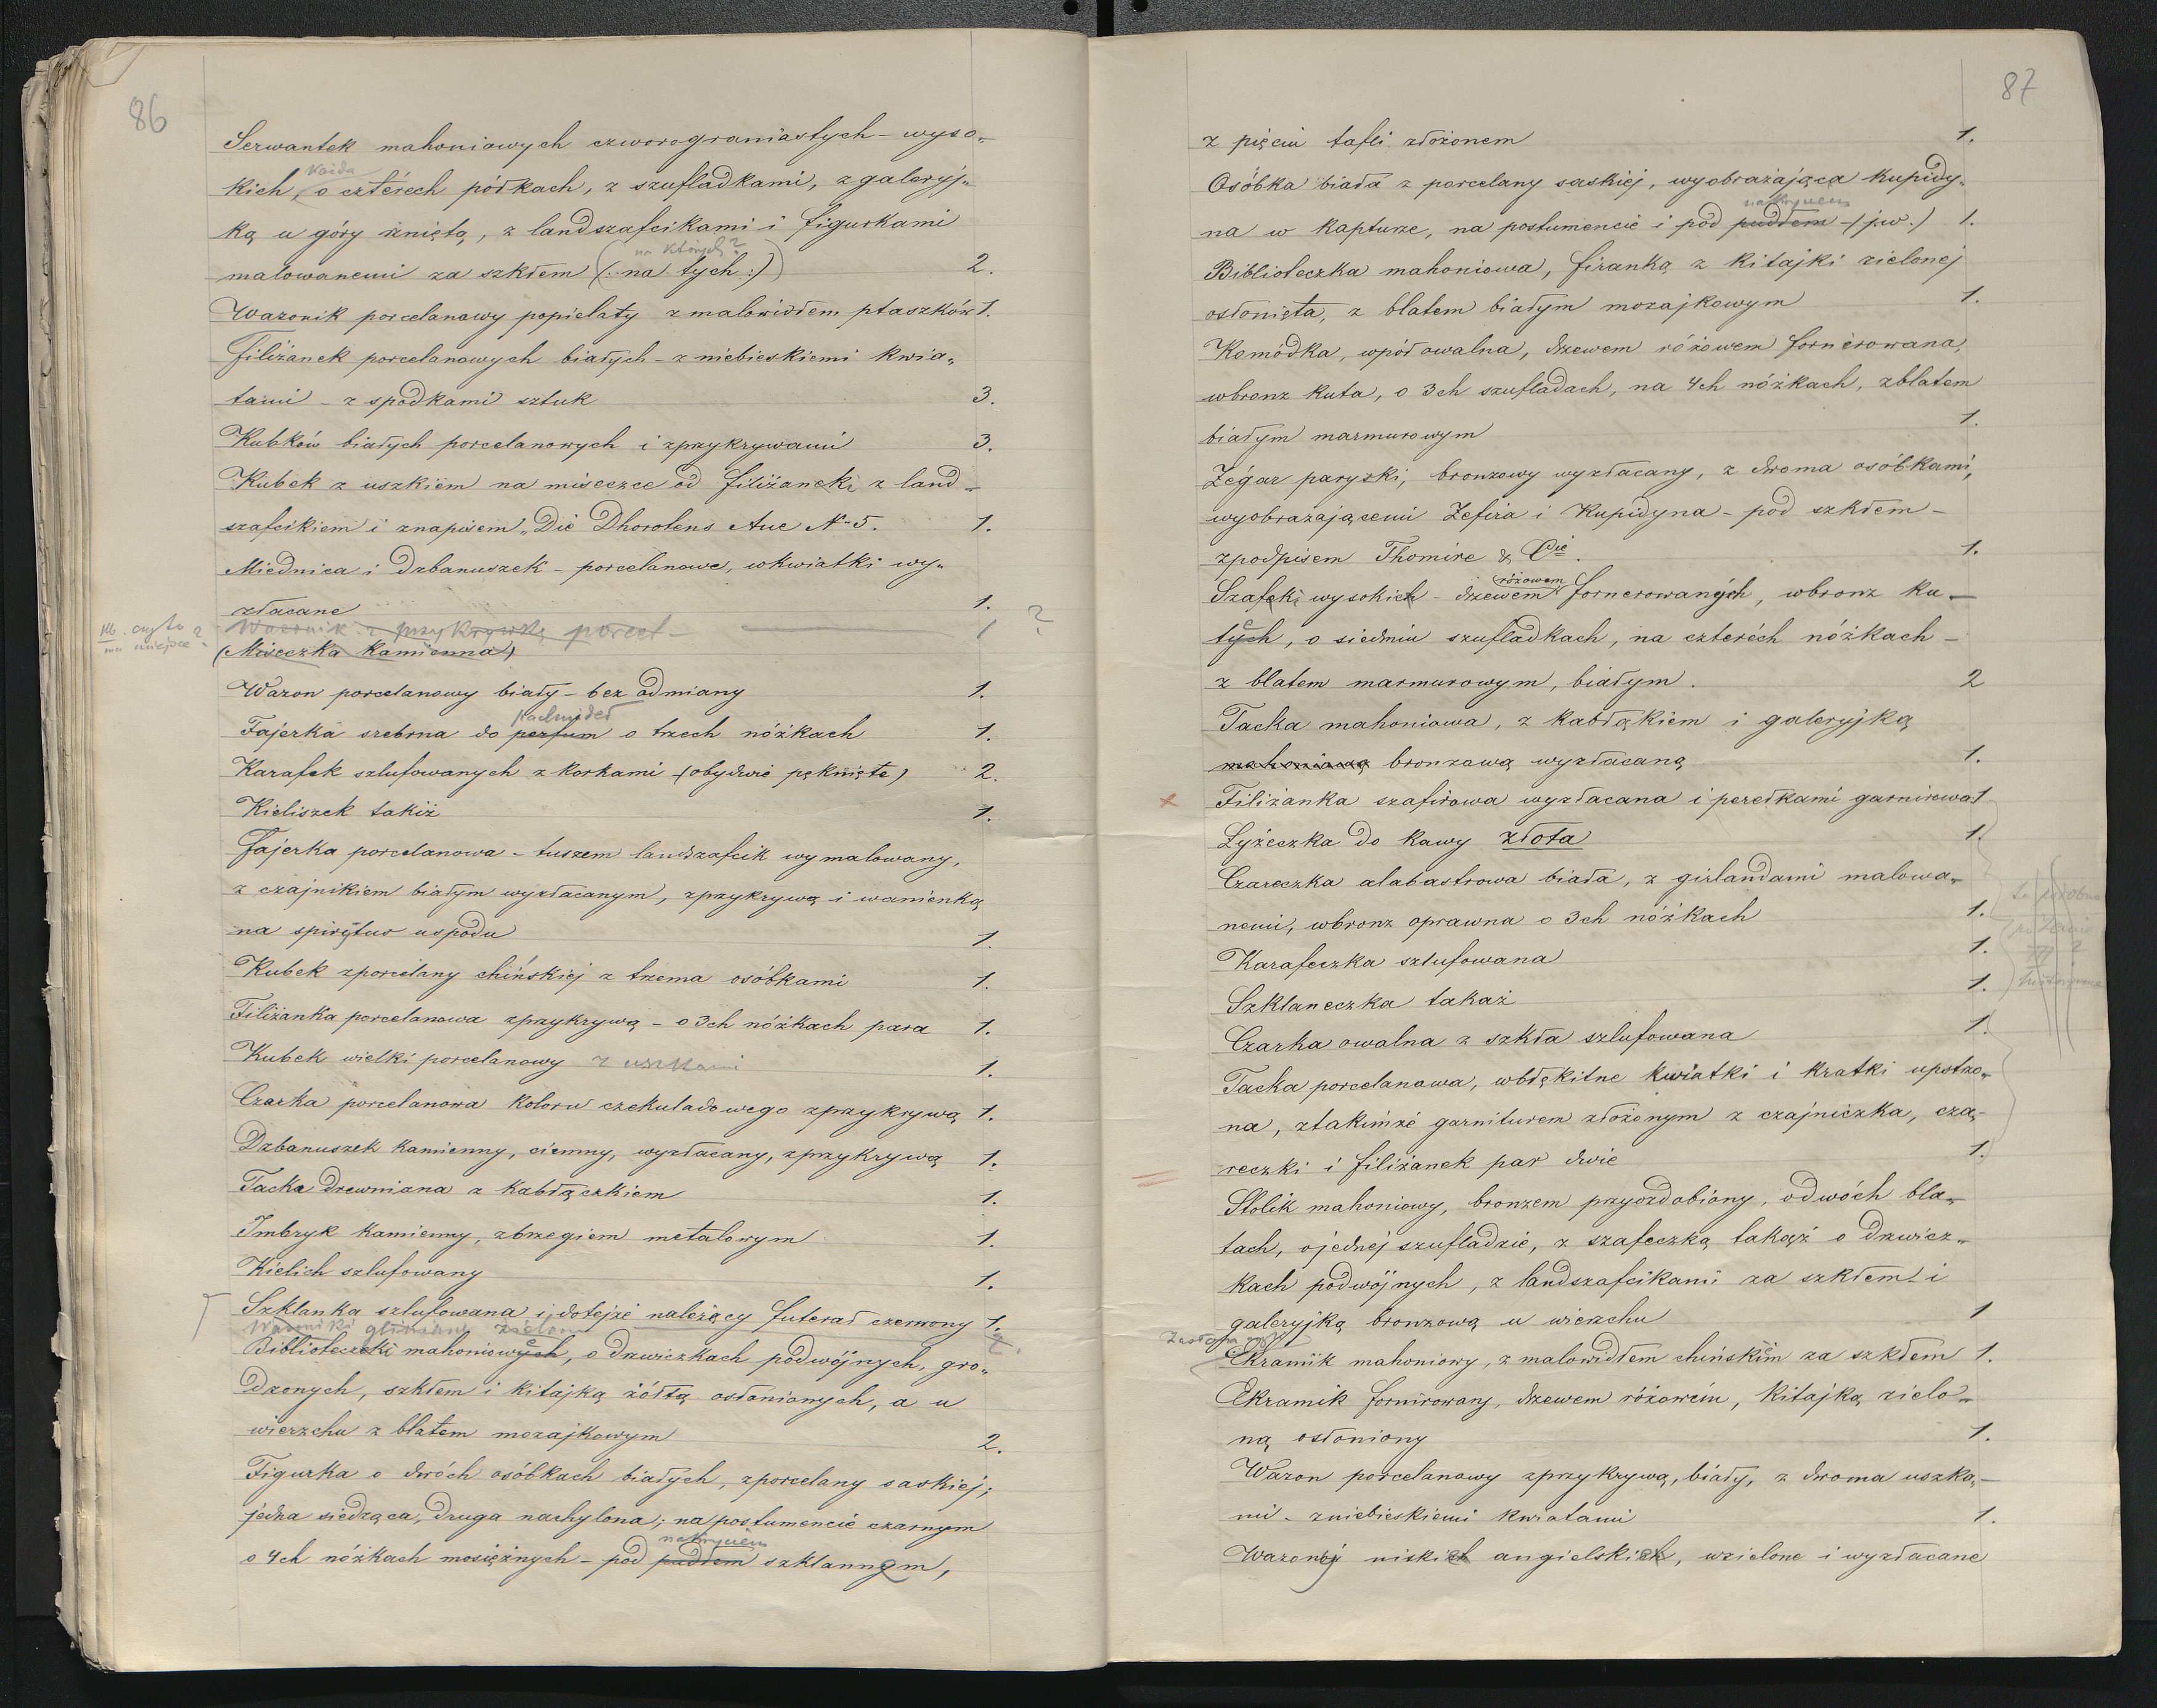 86
Serwantek mahoniowych czworograniastych - wyso„
każda
kich, o czterech półkach, z szufladkami, z galeryj„
ką u góry rżniętą, z landszafcikami i figurkami
na których?
malowanemi za szkłem (: na tych :) 2.
Wazonik porcelanowy popielaty z malowidłem ptaszków 1.
Filiżanek porcelanowych białych - z niebieskiemi kwia„
tami - z spodkami sztuk 3.
Kubków białych porcelanowych i z przykrywami 3.
Kubek z uszkiem na miseczce od filiżanki z land-
szafcikiem i z napisem „Die Dhorotens Aue N-5. 1.
Miednica i Dzbanuszek - porcelanowe, w kwiatki wy„
złacane 1.
Wazonik z przykrywką porcel- 1 ?
Nb. czy to ma miejsce?
(Miseczka Kamienna)
Wazon porcelanowy biały - bez odmiany 1.
kadzideł
Fajerka srebrna do perfum o trzech nóżkach 1.
Karafek szlufowanych z korkami (obydwie pęknięte) 2.
Kieliszek takiż 1.
Fajerka porcelanowa - tuszem landszafcik wymalowany,
z czajnikiem białym wyzłacanym, z przykrywą i wanienką
na spirytus u spodu 1.
Kubek z porcelany chińskiej z trzema osóbkami 1.
Filiżanka porcelanowa z przykrywą - o 3ch nóżkach para 1.
Kubek wielki porcelanowy z uszkami 1.
Czarka porcelanowa koloru czekuladowego z przykrywą 1.
Dzbanuszek kamienny, ciemny, wyzłacany, z przykrywą 1.
Tacka Drewniana z kabłączkiem 1.
Imbryk kamienny, z brzegiem metalowym 1.
Kielich szlufowany 1.
Szklanka szlufowana i do tejże należący futerał czerwony 1.
Wazoniki gliniane zielone 2.
Biblioteczki mahoniowych, o Drzwiczkach podwójnych, gro„
dzonych, szkłem i kitajką żółtą osłonianych, a u
wierzchu z blatem mozajkowym 2.
Figurka o dwóch osóbkach białych, z porcelany saskiej;
jedna siedząca, druga nachylona; na postumencie czarnym
nakryciem
o 4ch nóżkach mosiężnych - pod pudłem szklannem,
87
z pięciu tafli złożonem 1.
Osóbka biała z porcelany saskiej, wyobrażająca Kupidy„
nakryciem
na w kapturze, na postumencie i pod pudłem - (j.w.) 1.
Biblioteczka mahoniowa, firanką z kitajki zielonej
osłonięta, z blatem białym mozajkowym 1.
Komodka, wpół owalna, drzewem różowem fornerowana,
w bronz kuta, o 3ch szufladach, na 4ch nóżkach, z blatem
białym marmurowym 1.
Zégar paryski, bronzowy wyzłacany, z dwoma osóbkami,
wyobrażającemi Zefira i Kupidyna - pod szkłem -
z podpisem Thomire & Cie. 1.
różowem
Szafeki wysokich - drzewem fornerowanych, w bronz ku-
tych, o siedmiu szufladkach, na czterech nóżkach -
z blatem marmurowym, białym. 2
Tacka mahoniowa, z kabłąkiem i galeryjką
mahoniową bronzową wyzłacaną 1.
× Filiżanka szafirowa wyzłacana i perełkami garnirowa 1
Łyżeczka do kawy złota 1.
Czareczka alabastrowa biała, z girlandami malowa„
nemi, w bronz oprawna o 3ch nóżkach 1.
Karafeczka szlufowana 1.
Szklaneczka takaż 1.
Czarka owalna z szkła szlufowana 1.
Tacka porcelanowa, w błękitne kwiatki i kratki upstrzo„
na, z takimże garniturem złożonym z czajniczka, cza-
reczki i filiżanek par dwie 1.
Stolik mahoniowy, bronzem przyozdobiony, o dwóch bla„
tach, o jednej szufladzie, z szafeczką takąż o Drzwicz„
kach podwójnych, z landszafcikami za szkłem i
galeryjką bronzową u wierzchu 1
Ekranik mahoniowy, z malowidłem chińskiem za szkłem 1.
Ekranik fornirowany, drzewem różowém, kitajką zielo-
ną osłoniony 1.
Wazon porcelanowy z przykrywą, biały, z dwoma uszka-
mi - z niebieskiemi kwiatami 1.
Wazonej niskich angielskich, w zielone i wyzłacane